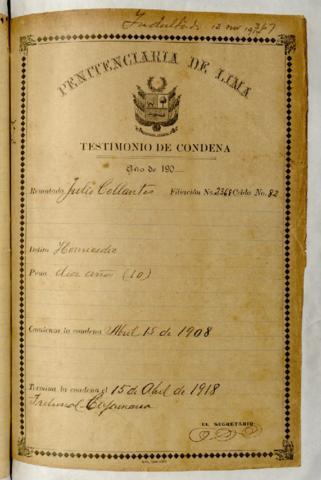 Indultado 12 nov
PENITENCIARIA DE LIMA
TESTIMONIO DE CONDENA
Año de 190
Rematado Julio Collantes Filiación No. 2368 Celda No. 82
Delito Homicidio
Pena diez años (10)
Comienza la condena Abril 15 de 1908
Termina la condena el 15 de Abril de 1918
Tribunal - Cajamarca
EL SECRETARIO